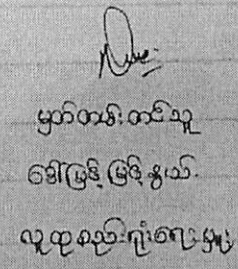 မှတ်တမ်းတင်သူ
ဒေါ်မြင့်မြင့်နွယ်
လူထုစည်းရုံးရေးမှူး